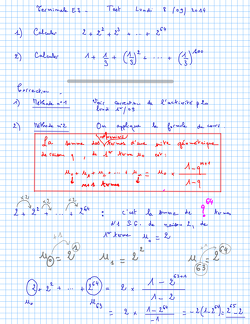 Terminale ES - Test Lundi 8/09/2014
1) Calculer 2 + 2² + 2³ + ... + 2⁶⁴
2) Calculer 1 + 1/3 + (1/3)² + ... + (1/3)¹⁰⁰
Correction
1) Méthode n°1 Voir correction de l'activité
2) Méthode n°2 On applique la formule du cours
La somme des termes d'une suite géométrique
de raison q, de 1er terme u₀ est :
u₀ + u₁ + u₂ + ... + uₙ = u₀ × (1 - qⁿ⁺¹)/(1 - q)
n+1 termes
2 + 2² + ... + 2⁶⁴ : c'est la somme de 64 termes
d'1 S.G. de raison 2, de
1er terme u₀ = 2
u₀ = 2 u₁ = 2² u₆₃ = 2⁶⁴
2 + 2² + ... + 2⁶⁴ = 2 × (1 - 2⁶³⁺¹)/(1 - 2)
u₀ u₆₃
= 2 × (1 - 2⁶⁴)/(-1) = -2(1 - 2⁶⁴) = 2⁶⁵ - 2